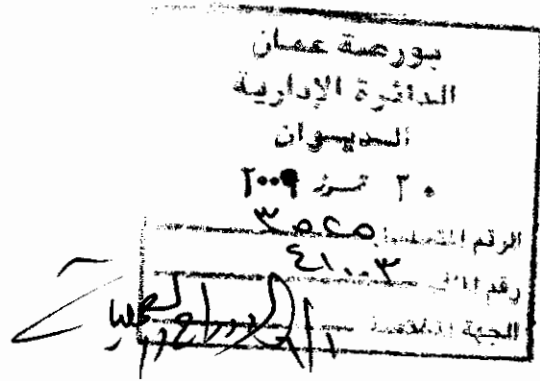 بورصة عمان
الدائرة الإدارية
الديوان
٢٠ تمـوز ٢٠٠٩
الرقم المتسلسل ٣٥٢٥
رقم الملف ٤١٠٠٣
الجهة المختصة